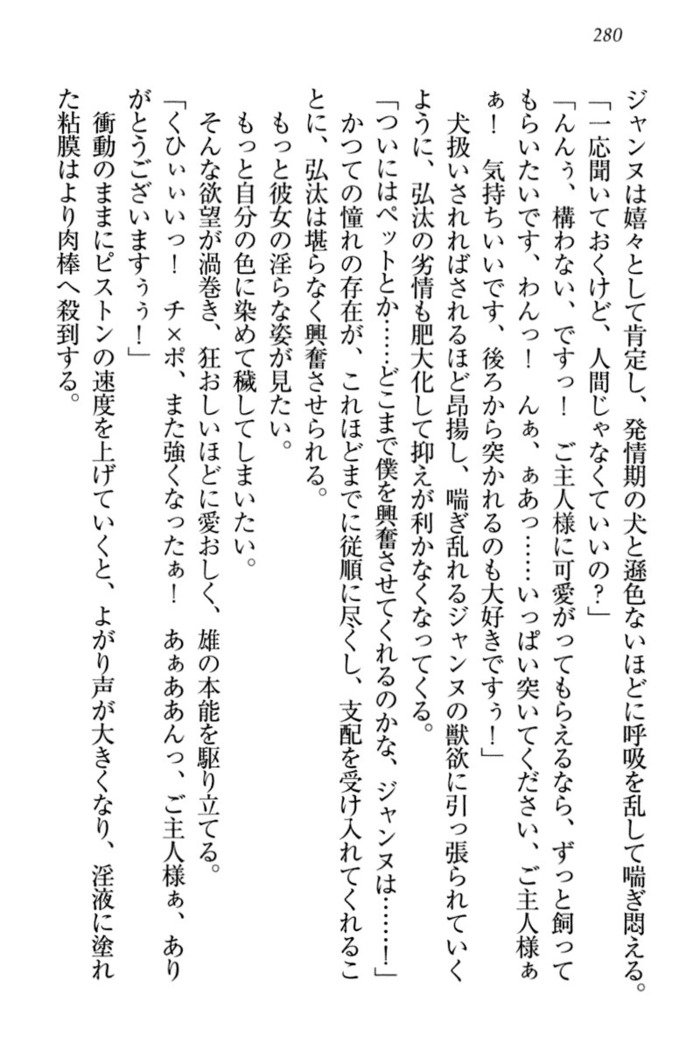 280
ジャンヌは嬉々として肯定し、発情期の犬と遜色ないほどに呼吸を乱して喘ぎ悶える。
「一応聞いておくけど、人間じゃなくていいの？」
「んんぅ、構わない、ですっ！　ご主人様に可愛がってもらえるなら、ずっと飼って
もらいたいです、わんっ！　んぁ、ぁあっ……いっぱい突いてください、ご主人様ぁ
ぁ！　気持ちいいです、後ろから突かれるのも大好きですぅ！」
犬扱いされればされるほど昂揚し、喘ぎ乱れるジャンヌの獣欲に引っ張られていく
ように、弘汰の劣情も肥大化して抑えが利かなくなってくる。
「ついにはペットとか……どこまで僕を興奮させてくれるのかな、ジャンヌは……！」
かつての憧れの存在が、これほどまでに従順に尽くし、支配を受け入れてくれるこ
とに、弘汰は堪らなく興奮させられる。
もっと彼女の淫らな姿が見たい。
もっと自分の色に染めて穢してしまいたい。
そんな欲望が渦巻き、狂おしいほどに愛おしく、雄の本能を駆り立てる。
「くひぃぃいっ！　チ×ポ、また強くなったぁ！　あぁああんっ、ご主人様ぁ、あり
がとうございますぅぅ！」
衝動のままにピストンの速度を上げていくと、よがり声が大きくなり、淫液に塗れ
た粘膜はより肉棒へ殺到する。